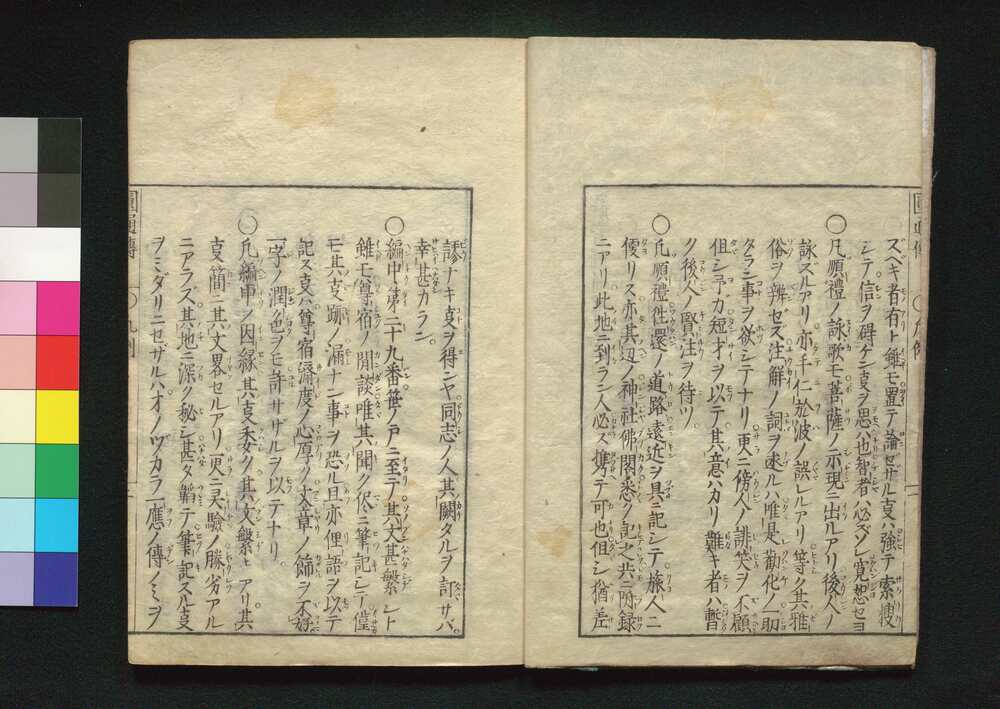 スベキ者有ト雖モ置テ論ゼザル叓ハ強テ索捜
シテ信ヲ碍ゲン叓ヲ思ヘ也智者ハ必ズソレ寛恕セヨ
〇凡順禮ノ詠歌モ菩薩ノ示現ニ出ルアリ後人ノ
詠ズルアリ亦手仁於波ノ誤レアリ等ク其雅
俗ヲ辨ゼス注解ノ詞ヲ述ルハ唯是勸化ノ一助
タラン事ヲ欲シテナリ更ニ傍人ノ誹笑ヲ不顧
但シ予カ短才ヲ以テ其意ハカリ難キ者ハ暫
ク後人ノ賢注ヲ待ツ
〇凡順禮徃還ノ道路遠近ヲ具ニ記シテ旅人ニ
便リス亦其辺ノ神社佛閣悉ク記之共ニ附録
ニアリ此地ニ到ラン人必ス携テ可也但シ猶差
謬ナキ叓ヲ得ンヤ同志ノ人其闕タルヲ訂サバ
幸甚カラン
〇編中第二十九番笹ノ戸ニ至テ其文甚繁シト
雖モ尊宿ノ閒談唯其聞ク侭ニ筆記シテ僅
モ其叓跡ノ漏ナン事ヲ恐ル且亦俚語ヲ以テ
記ス叓ハ尊宿濟度ノ心厚ク文章ノ餝ヲ不好
一字ノ潤色ヲモ許サザルヲ以テナリ
〇凡編中ノ因縁其叓委ク其文繁ヒアリ其
叓簡ニ其文畧セルアリ更ニ㚑驗ノ勝劣アル
ニアラス其地ニ深ク秘シ甚タ韜テ筆記スル叓
ヲミダリニセザルハオノヅカラ一應ノ傳ノミヲ